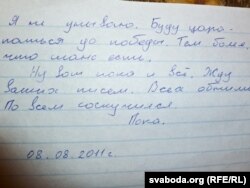 Я не унываю. Буду цара-
паться до победы. Тем более,
что шанс есть.
Ну вот пока и всё. Жду
ваших писем. Всех обнимаю.
По всем соскучился.
Пока.
08.08.2011г.
svaboda.org (RFE/RL)